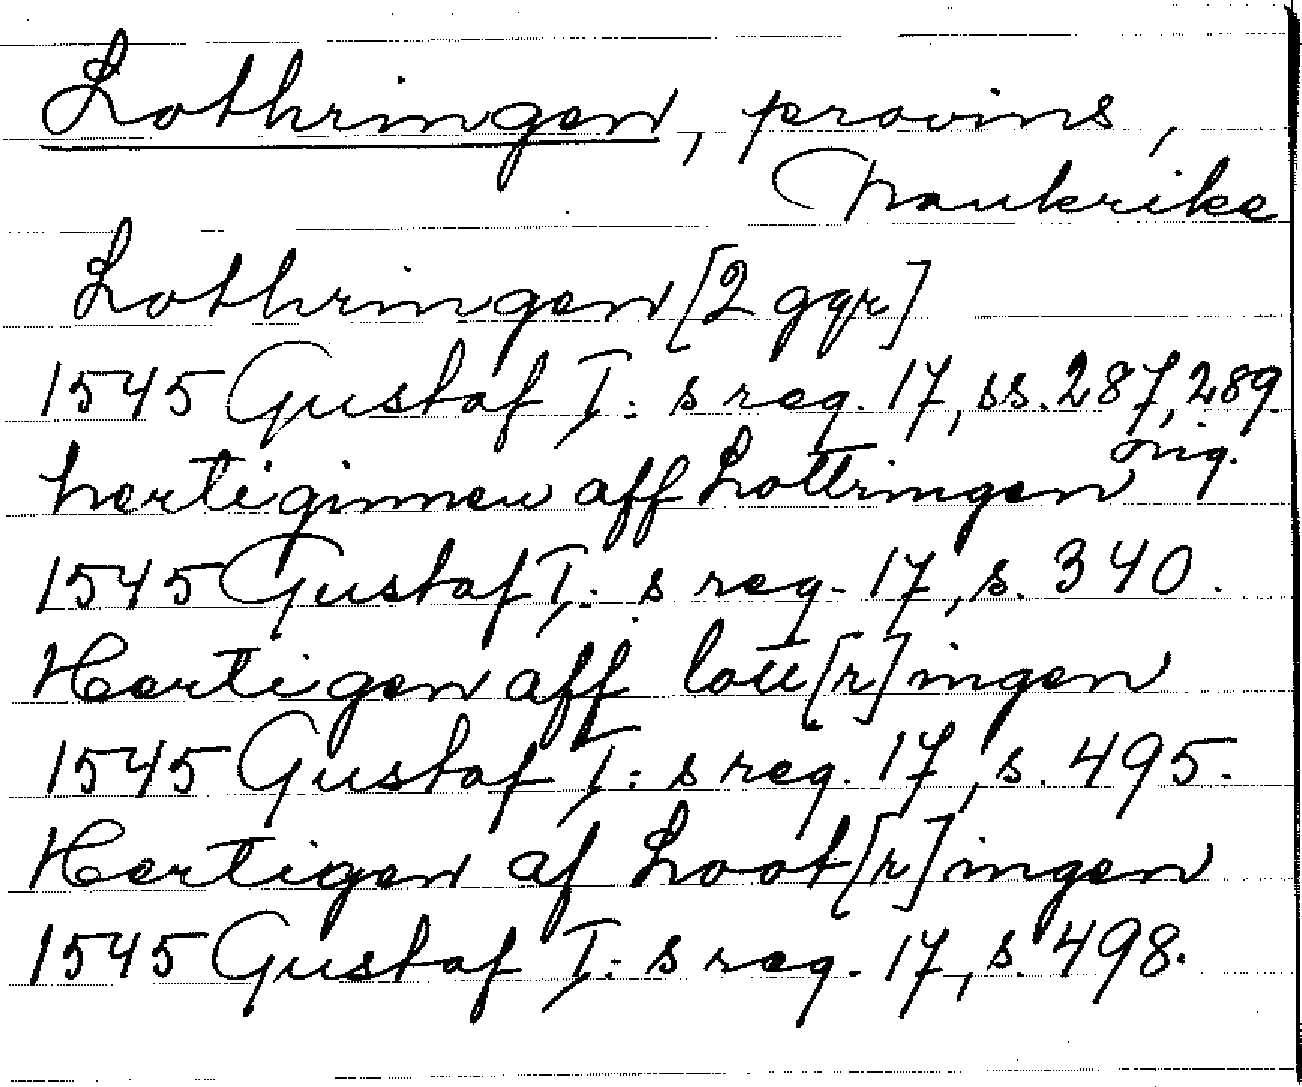 Lothringen, provins,
Frankrike
Lothringen [2 ggr]
1545 Gustaf I:s reg. 17, ss. 287, 289.
orig.
hertiginnen aff Lottringen
1545 Gustaf I:s reg. 17, s. 340.
Hertigen aff lott[r]ingen
1545 Gustaf I:s reg. 17, s. 495.
Hertigen af Loot[r]ingen
1545 Gustaf I:s reg. 17, s. 498.